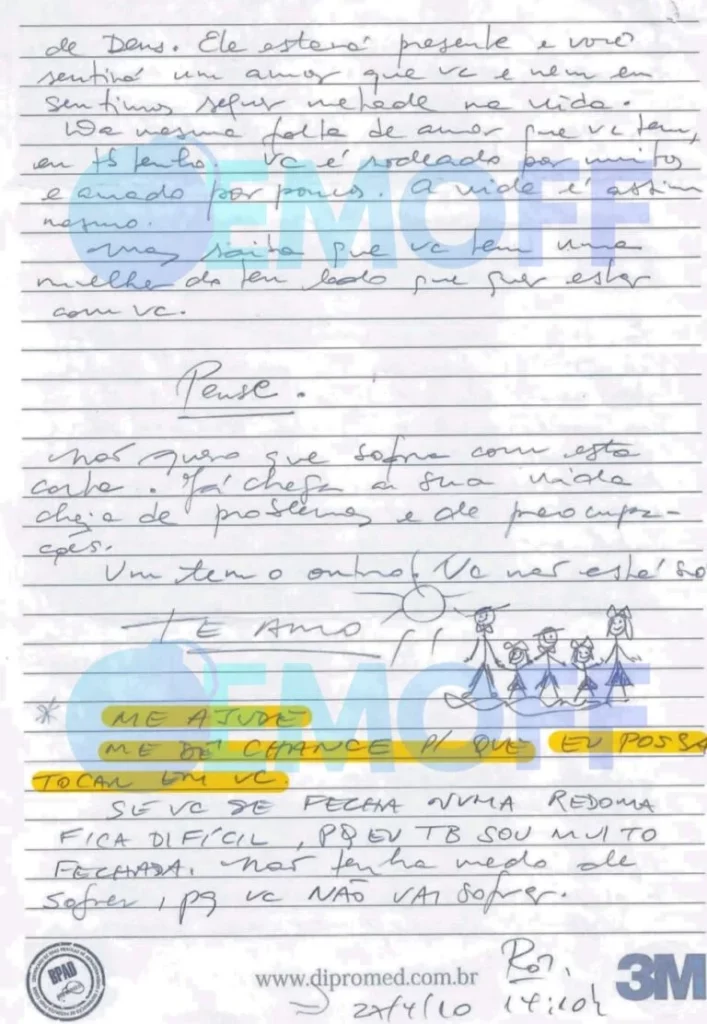 de Deus. Ele estará presente e você
sentirá um amor que vc e nem eu
sentimos sequer metade na vida.
Da mesma falta de amor que vc tem,
eu tb tenho. Vc é rodeado por muitos
e amado por poucos. A vida é assim
mesmo.
Mas saiba que vc tem uma
mulher do teu lado que quer estar
com vc.
Pense.
Não quero que sofra com esta
carta. Já chega a sua vida
cheia de problemas e de preocupa-
ções.
Um tem o outro! Vc não está só
TE AMO!!
* ME AJUDE
ME DÊ CHANCE P/ QUE EU POSSA
TOCAR EM VC.
SE VC SE FECHA NUMA REDOMA
FICA DIFÍCIL, PQ EU TB SOU MUITO
FECHADA. Não tenha medo de
sofrer, pq vc NÃO VAI sofrer.
EMOFF
EMOFF
BPAD
www.dipromed.com.br
3M
27/4/10 14:10h